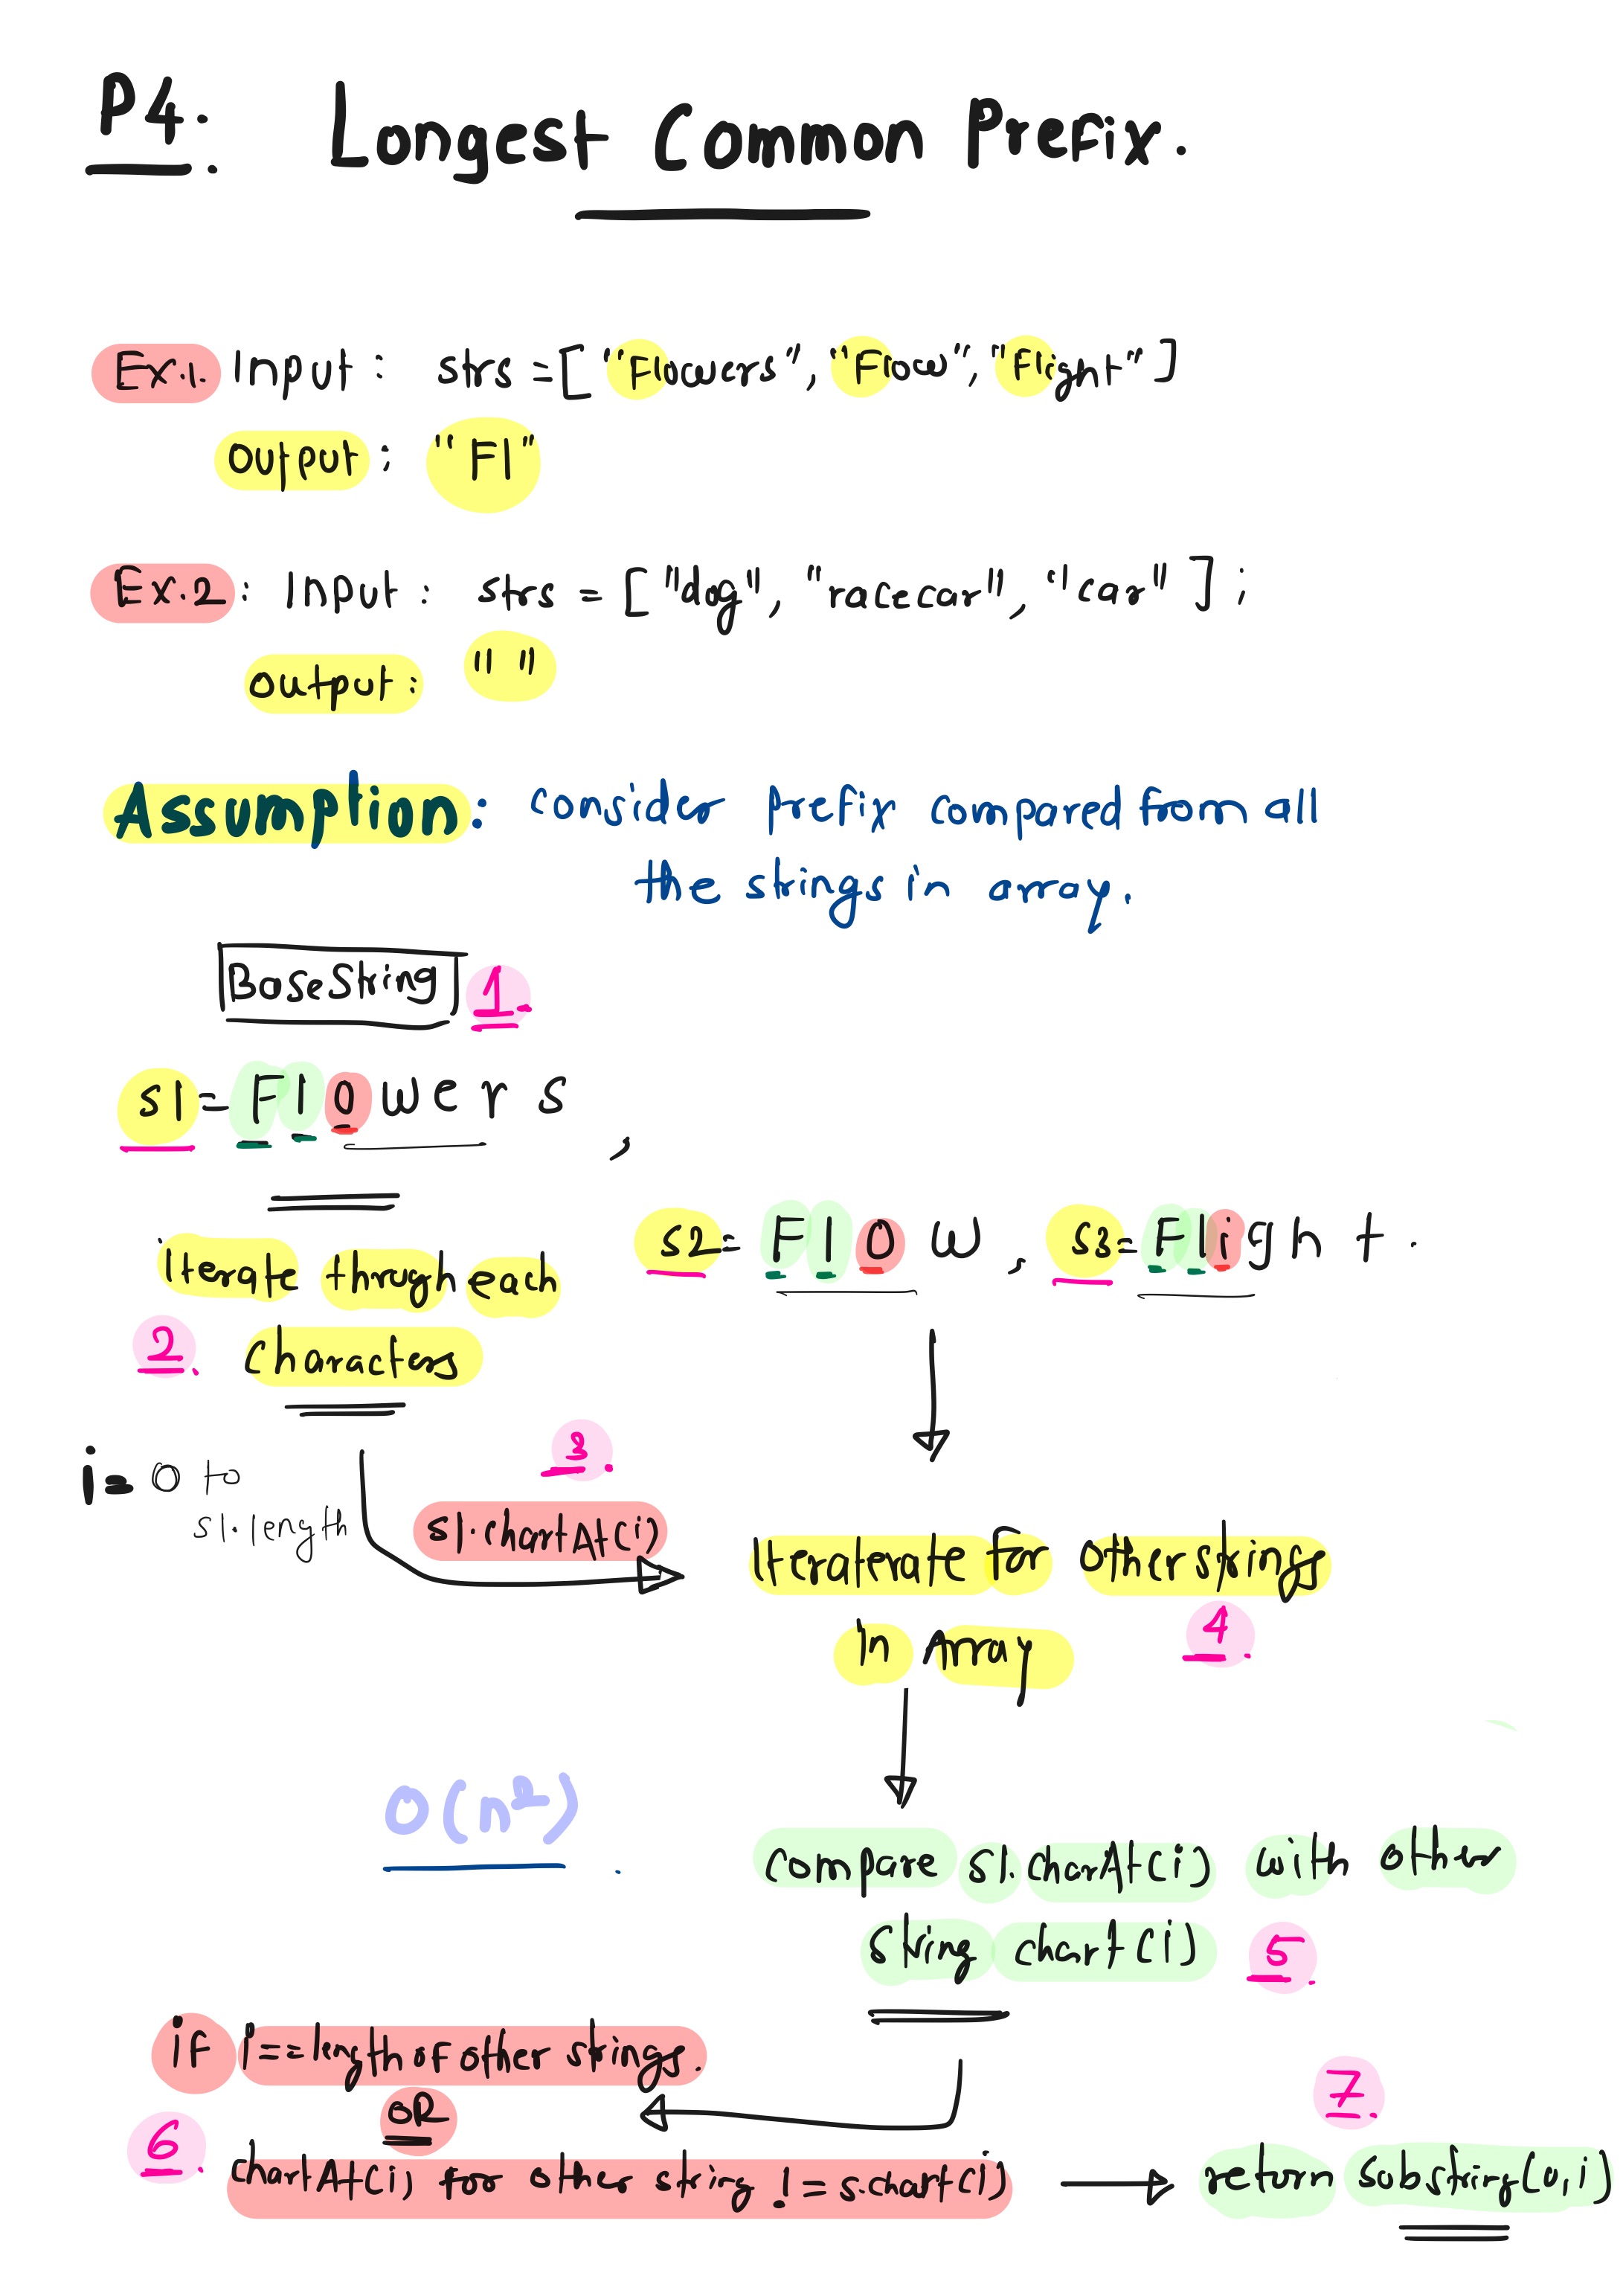 P4. Longest Common Prefix.
Ex.1. Input : strs = [ "Flowers", "Flow", "Flight" ]
output : "Fl"
Ex.2 : Input : strs = [ "dog", "racecar", "car" ] ;
output : " "
Assumption : consider prefix compared from all
the strings in array.
BaseString 1.
s1 = F l o w e r s ,
s2 = F l o w , s3 = F l i g h t .
iterate through each
2. characters
i = 0 to
s1.length
3.
s1.chartAt(i)
Iteraterate for other strings
In Array 4.
O(n²) .
compare s1.charAt(i) with other
string chart(i) 5.
if i == length of other strings.
OR
6. chartAt(i) for other string != s.chart(i)
7.
return substring(0,i)